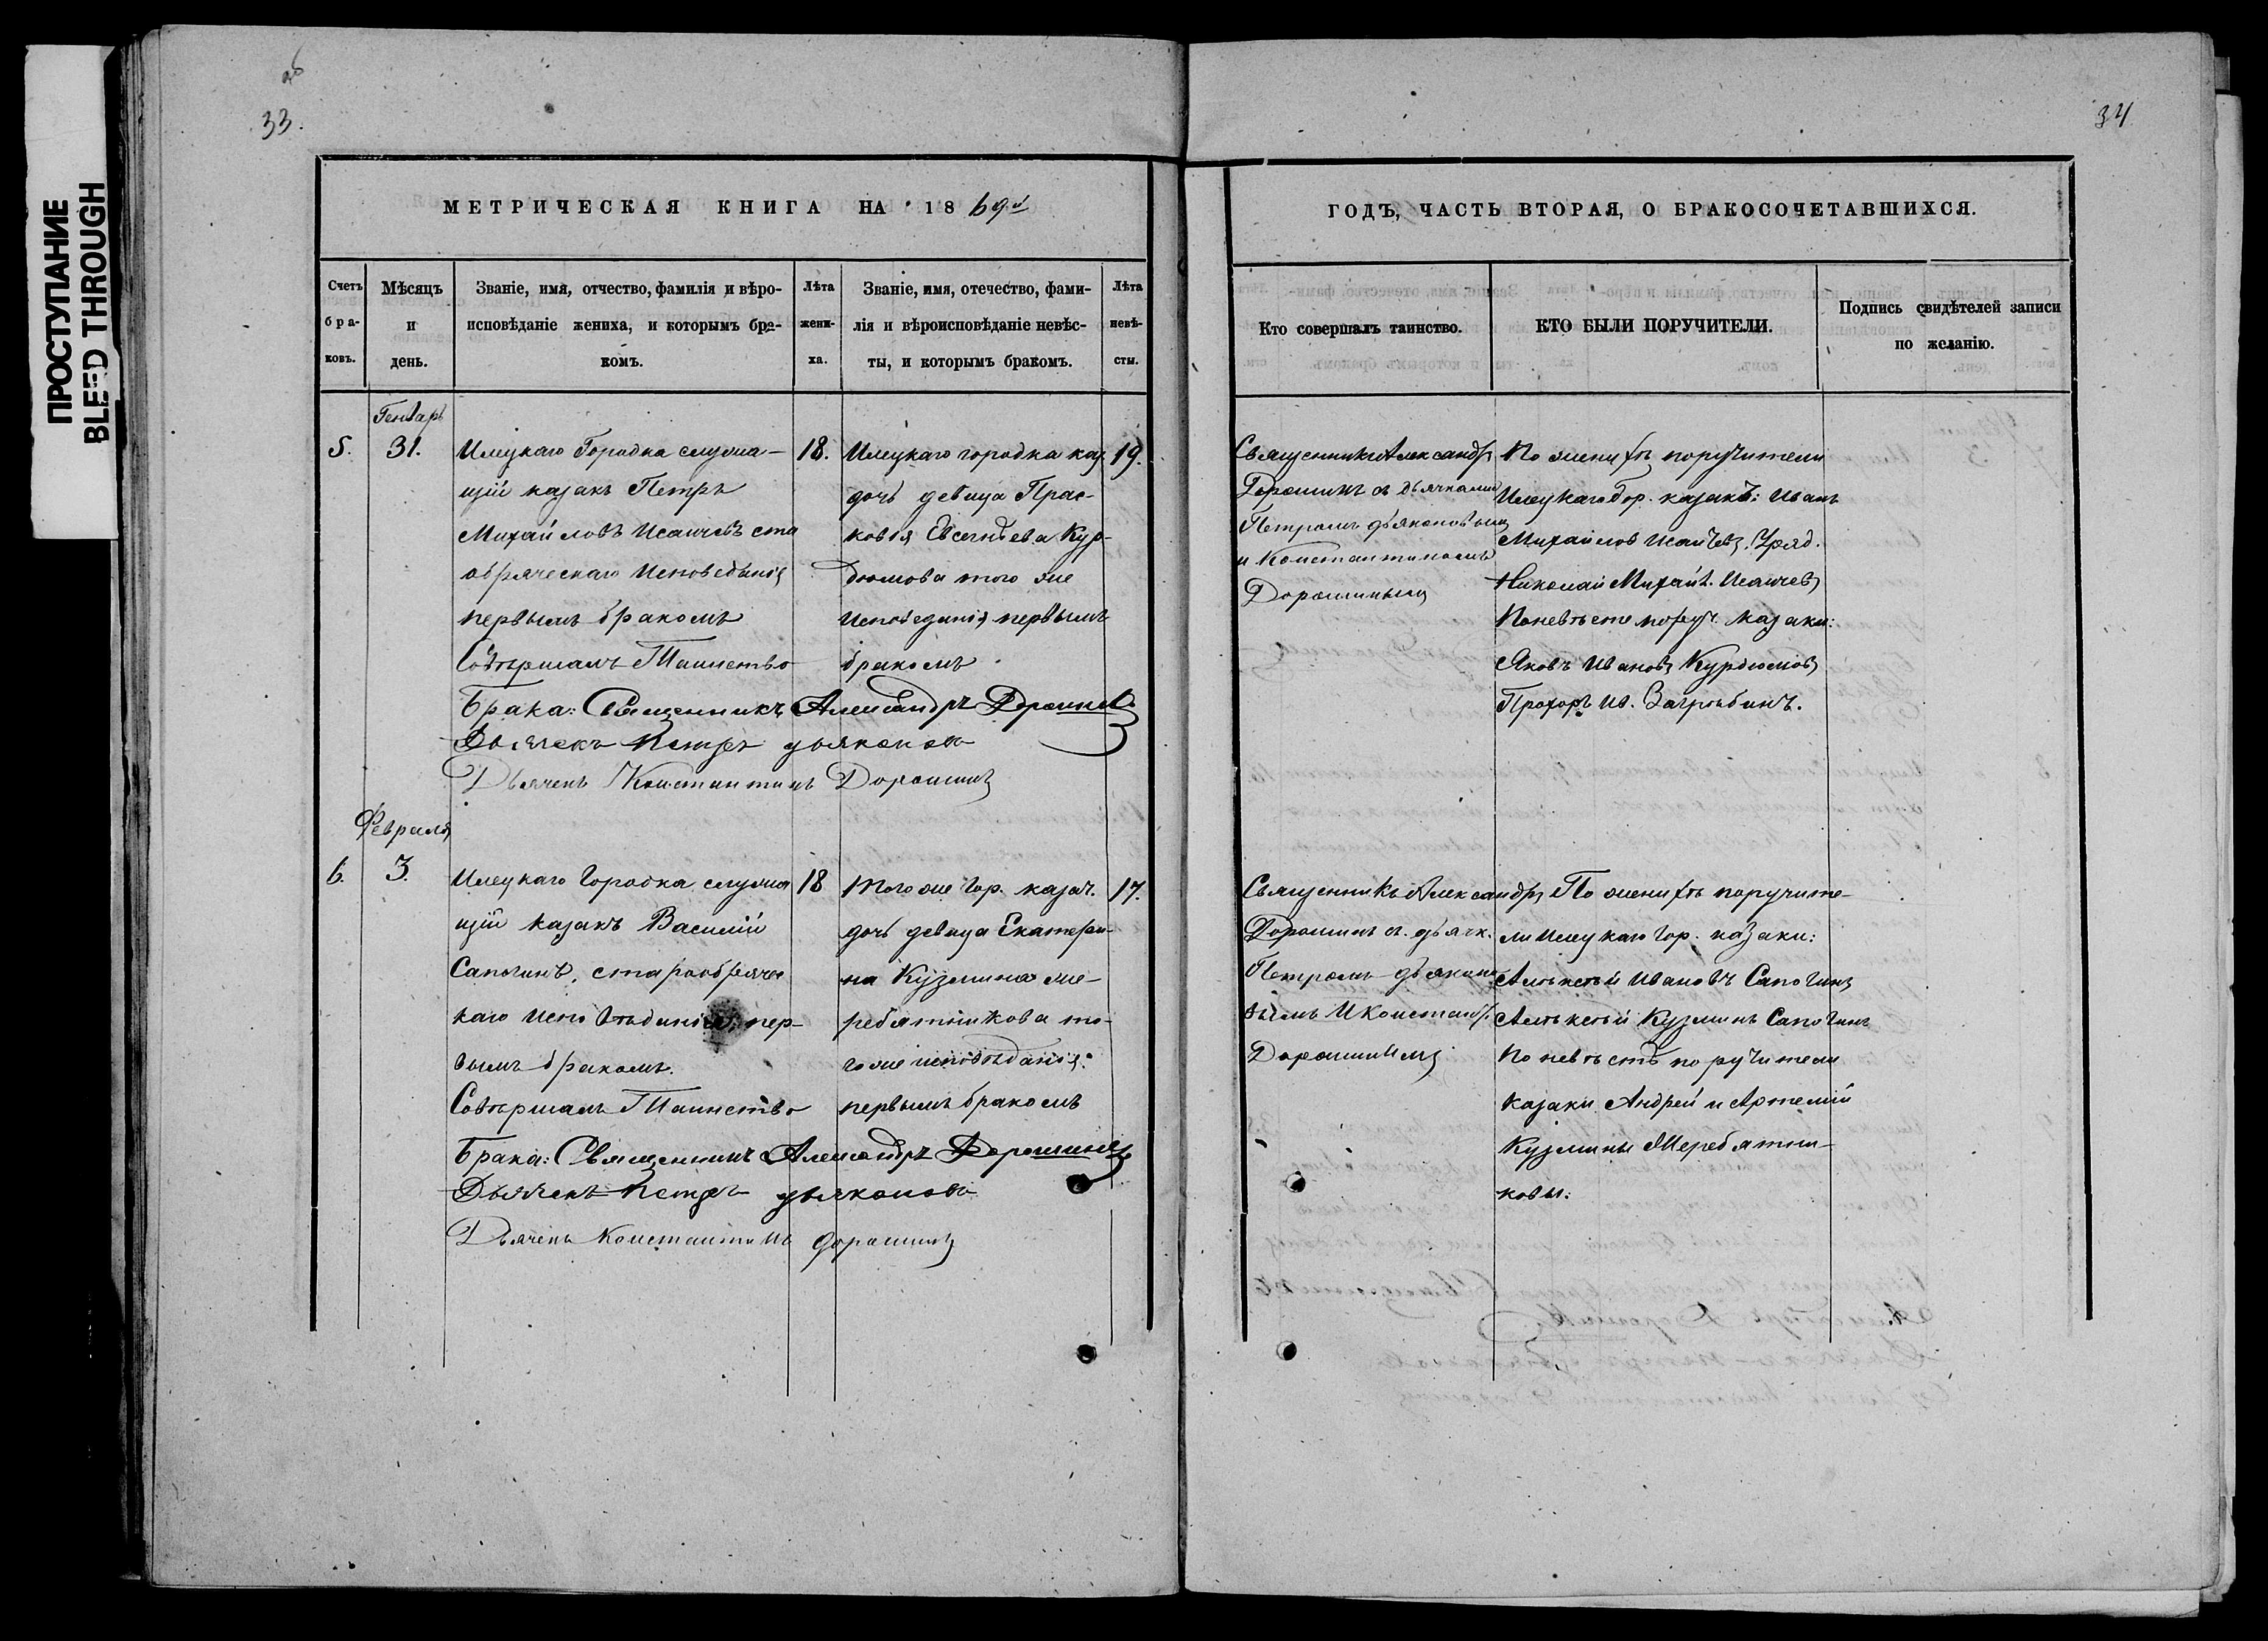 ПРОСТУПАНИЕ
BLEED THROUGH
33.
34
МЕТРИЧЕСКАЯ КНИГА НА 1869й
ГОДЪ, ЧАСТЬ ВТОРАЯ, О БРАКОСОЧЕТАВШИХСЯ.
Счетъ бра-ковъ.
Мѣсяцъ и день.
Званіе, имя, отчество, фамилія и вѣро-
исповѣданіе жениха, и которымъ бра-
комъ.
Лѣта жени-ха.
Званіе, имя, отечество, фами-
лія и вѣроисповѣданіе невѣс-
ты, и которымъ бракомъ.
Лѣта невѣ-сты.
Кто совершалъ таинство.
КТО БЫЛИ ПОРУЧИТЕЛИ.
Подпись свидѣтелей записи
по желанію.
Генварь
5.
31.
Илецкаго Городка служа-
щій казакъ Петръ
Михайловъ Исаичевъ ста
обряческаго Исповеданія
первымъ бракомъ
Совѣршалъ Таинство
Брака: Священникъ Александръ Дорошинъ
Дьячекъ Петръ дьяконовъ
Дьячекъ Константинъ Дорошинъ
18.
Илецкаго городка каз.
дочь девица Прас-
ковья Евсегнѣева Кур-
дюмова того же
исповеданія первымъ
бракомъ
19.
Священникъ Александръ
Дорошинъ съ дьячками
Петромъ дьяконовымъ
и Константиномъ
Дорошинымъ
По женихѣ поручители
Илецкаго Гор. казакъ: Иванъ
Михайлов Исаичевъ, Уряд.
Николай Михайл. Исаичевъ
По невѣсте поруч. казаки:
Яковъ Ивановъ Курдюмовъ
Прохоръ Ив. Загрѣбинъ.
Февраля
6.
3.
Илецкаго Городка служа
щій казакъ Василій
Сапогинъ, старообрячес
каго исповѣданія, пер-
вымъ бракомъ.
Совѣршалъ Таинство
Брака: Священникъ Александръ Дорошинъ
Дьячекъ Петръ дьяконовъ
Дьячекъ Константинъ Дорошинъ
18
Того же Гор. казач.
дочь девица Екатери-
на Кузмина Же-
ребятникова то-
го же исповѣданія
первымъ бракомъ
17.
Священникъ Александръ
Дорошинъ съ дьячк.
Петромъ дьяконо
вымъ и Констант.
Дорошинымъ
По женихѣ поручите-
ли Илецкаго Гор. казаки:
Алѣксѣй Ивановъ Сапогинъ
Алѣксѣй Кузминъ Сапогинъ
По невѣстѣ поручители
казаки Андрей и Артемій
Кузмины Жеребятни-
ковы.